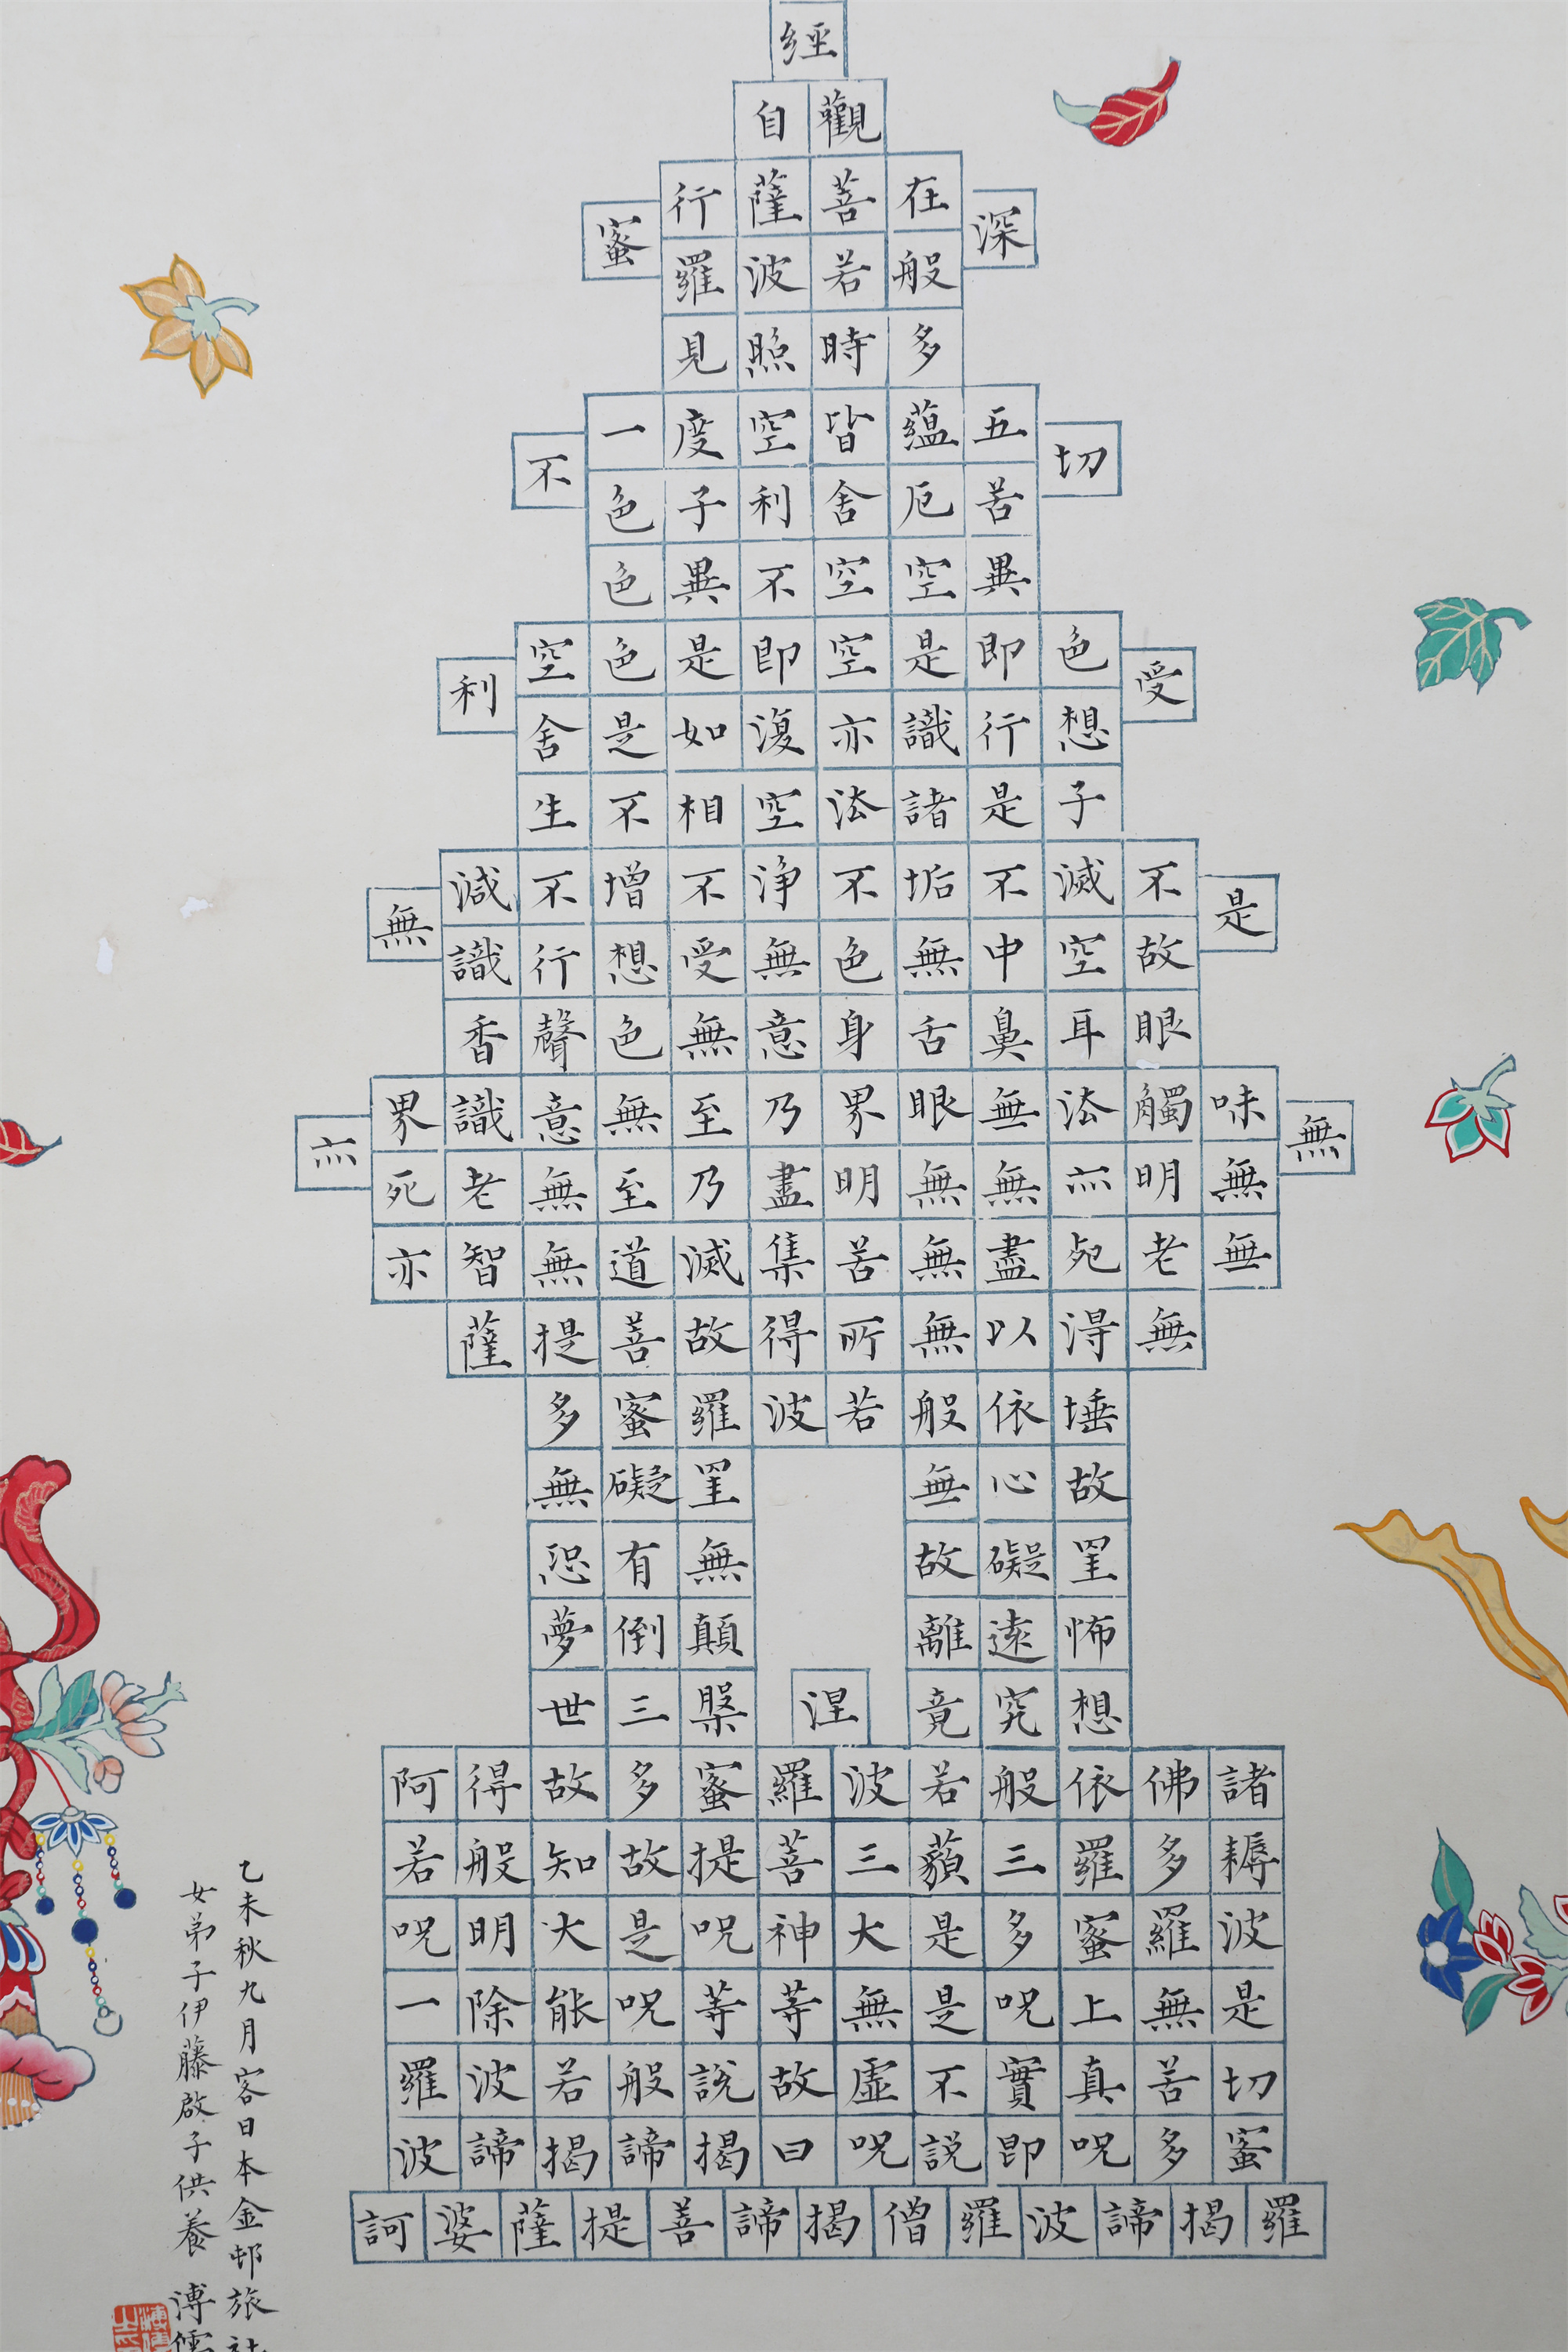 經
觀自
在菩薩行
深
般若波羅
蜜
多時照見
五蘊皆空度一
切
苦厄舍利子色
不
異空空不異色
色即是空即是色空
受
想行識亦復如是舍
利
子是諸法空相不生
不滅不垢不淨不增不減
是
故空中無色無受想行識
無
眼耳鼻舌身意無色聲香
味觸法無眼界乃至無意識界
無
無明亦無無明盡乃至無老死
亦
無老死盡無苦集滅道無智亦
無得以無所得故菩提薩
埵依般若波羅蜜多
故心無罣礙無
罣礙故無有恐
怖遠離顛倒夢
想究竟涅槃三世
諸佛依般若波羅蜜多故得阿
耨多羅三藐三菩提故知般若
波羅蜜多是大神咒是大明咒
是無上咒是無等等咒能除一
切苦真實不虛故說般若波羅
蜜多咒即說咒曰揭諦揭諦波
羅揭諦波羅僧揭諦菩提薩婆訶
乙未秋九月客日本金邨旅社
女弟子伊藤啟子供養 溥儒